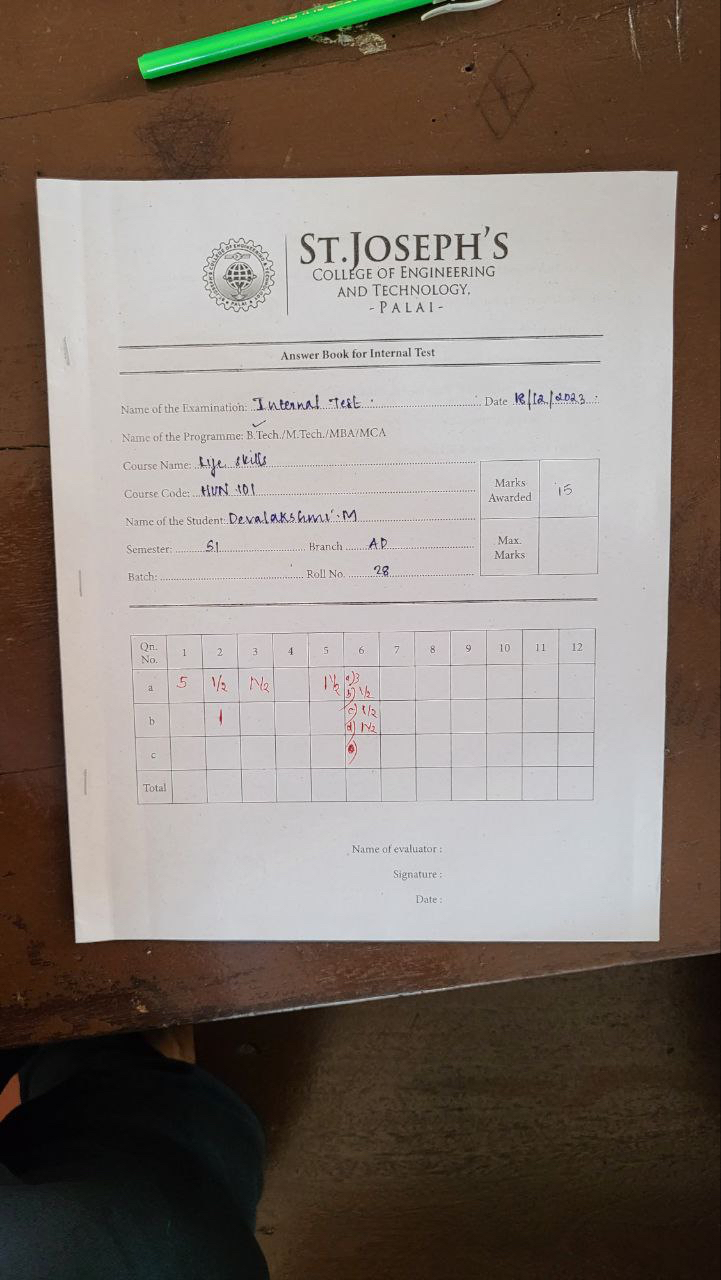 ST.JOSEPH'S
COLLEGE OF ENGINEERING
AND TECHNOLOGY,
- PALAI -
Answer Book for Internal Test
Name of the Examination: Internal Test. Date 18/12/2023
Name of the Programme: B.Tech./M.Tech./MBA/MCA
Course Name: Life skills
Course Code: HUN 101
Name of the Student: Devalakshmi.M
Semester: S1 Branch AD
Batch: Roll No. 28
Marks Awarded 15
Max. Marks
Qn. No. 1 2 3 4 5 6 7 8 9 10 11 12
a 5 1/2 1 1/2 1 1/2 a) 3
b) 1/2
b 1 c) 1/2
d) 1 1/2
c
Total
Name of evaluator :
Signature :
Date :